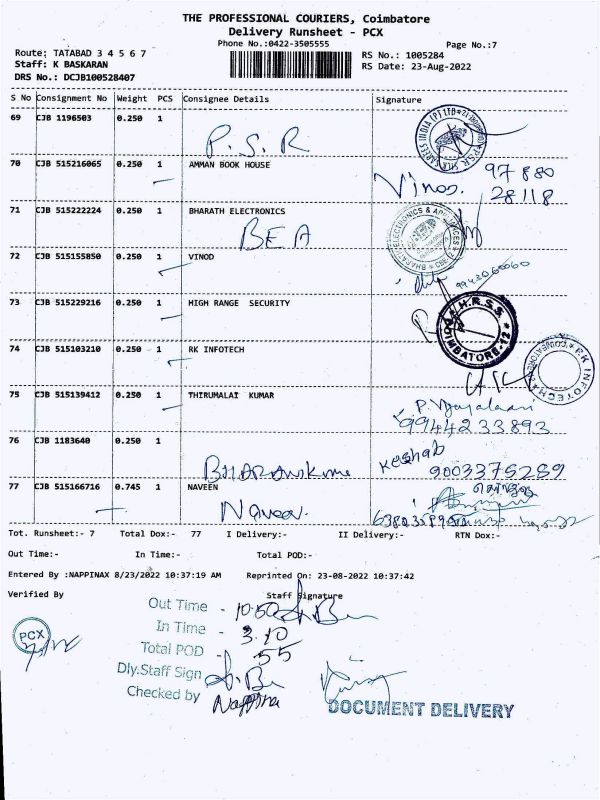 THE PROFESSIONAL COURIERS, Coimbatore
Delivery Runsheet - PCX
Phone No.:0422-3505555
Page No.:7
Route: TATABAD 3 4 5 6 7
RS No.: 1005284
Staff: K BASKARAN
RS Date: 23-Aug-2022
DRS No.: DCJB100528407
S No Consignment No Weight PCS Consignee Details Signature
69 CJB 1196503 0.250 1
P.S.R
70 CJB 515216065 0.250 1 AMMAN BOOK HOUSE
Vinod. 97880
28118
71 CJB 515222224 0.250 1 BHARATH ELECTRONICS
BEA
72 CJB 515155850 0.250 1 VINOD
73 CJB 515229216 0.250 1 HIGH RANGE SECURITY
H.R.S.S.
COIMBATORE-12
74 CJB 515103210 0.250 1 RK INFOTECH
R.K INFOTECH COIMBATORE
75 CJB 515139412 0.250 1 THIRUMALAI KUMAR
P. Vijayalaxmi
9944233893
76 CJB 1183640 0.250 1
Keshab
9003375289
77 CJB 515166716 0.745 1 NAVEEN
Naveen.
Tot. Runsheet:- 7 Total Dox:- 77 I Delivery:- II Delivery:- RTN Dox:-
Out Time:- In Time:- Total POD:-
Entered By :NAPPINAX 8/23/2022 10:37:19 AM Reprinted On: 23-08-2022 10:37:42
Verified By Staff Signature
Out Time - 10.50
In Time - 3.10
Total POD - 55
Dly.Staff Sign
Checked by Nappina
PCX
DOCUMENT DELIVERY